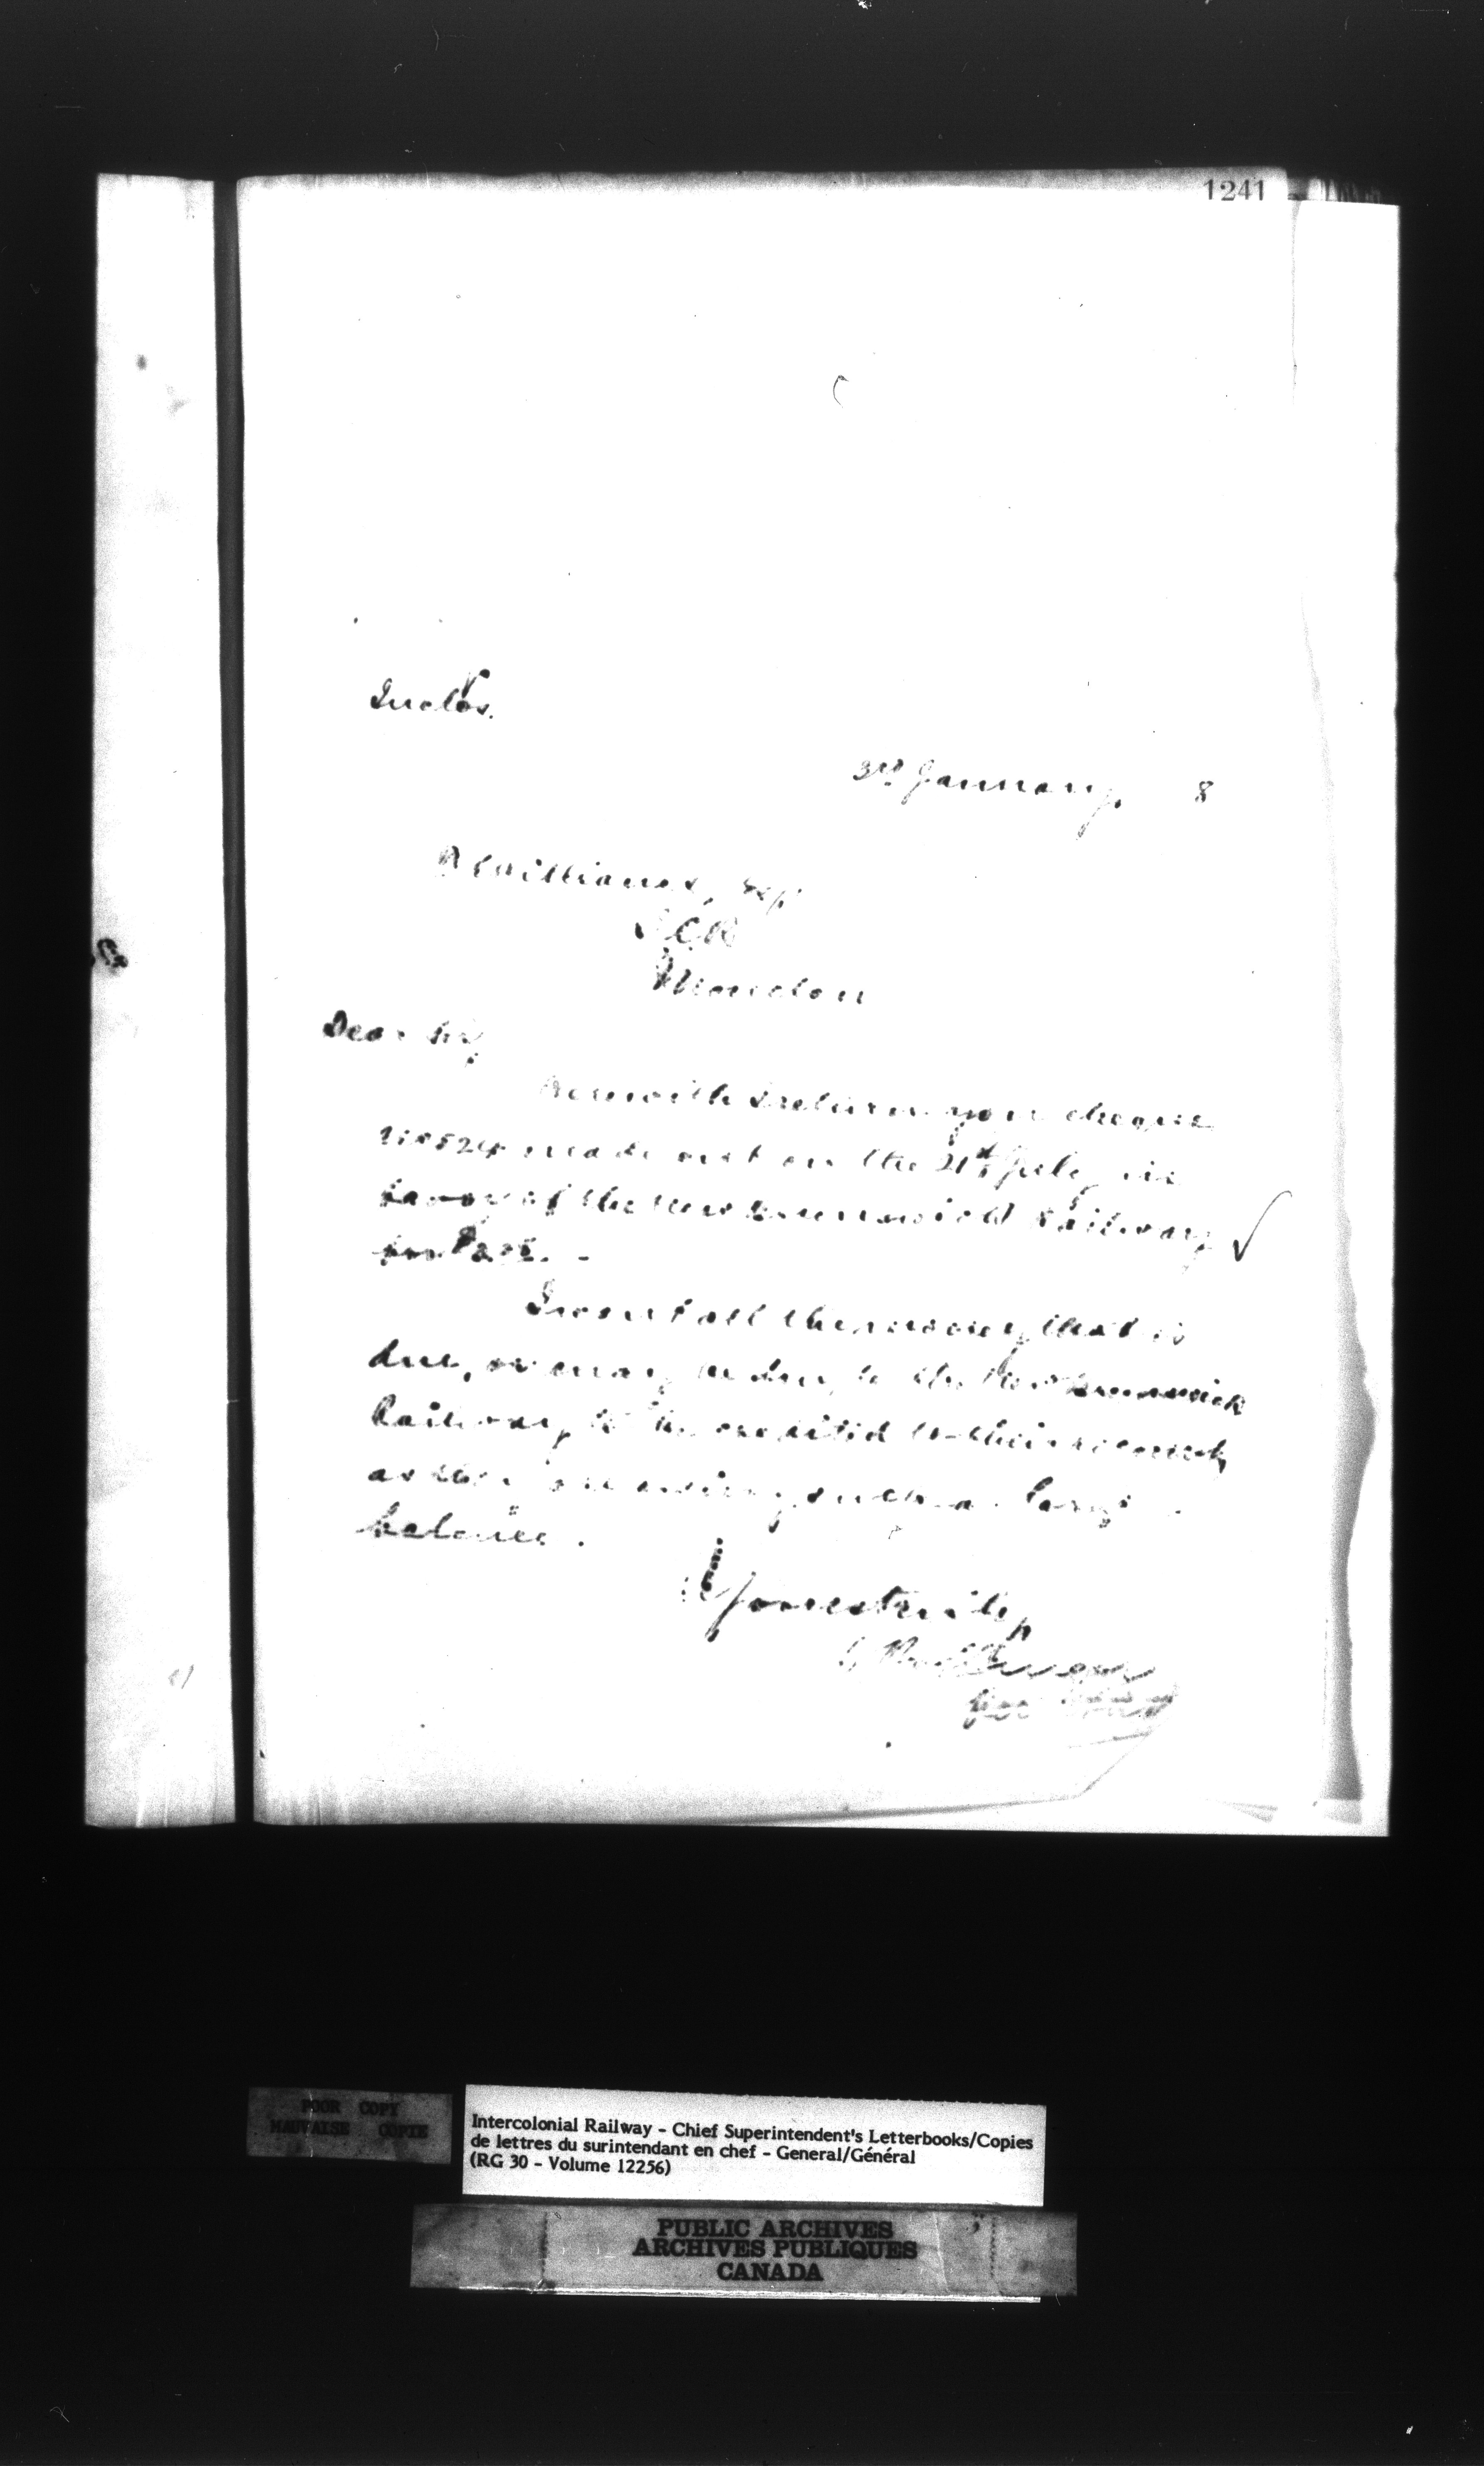 1241
Inclos.
3rd January, 8
Williams, Esq
I C R
Moncton
Dear Sir,
Herewith I return your cheque
made out on the 21st July in
favor of the New Brunswick Railway ✓
for
I want all the money that is
due, or may be due, to the New Brunswick
Railway, to be credited to their account,
as they are owing such a large
balance.
Yours truly,
D Pottinger
POOR COPY
MAUVAISE COPIE
Intercolonial Railway - Chief Superintendent's Letterbooks/Copies
de lettres du surintendant en chef - General/Général
(RG 30 - Volume 12256)
PUBLIC ARCHIVES
ARCHIVES PUBLIQUES
CANADA